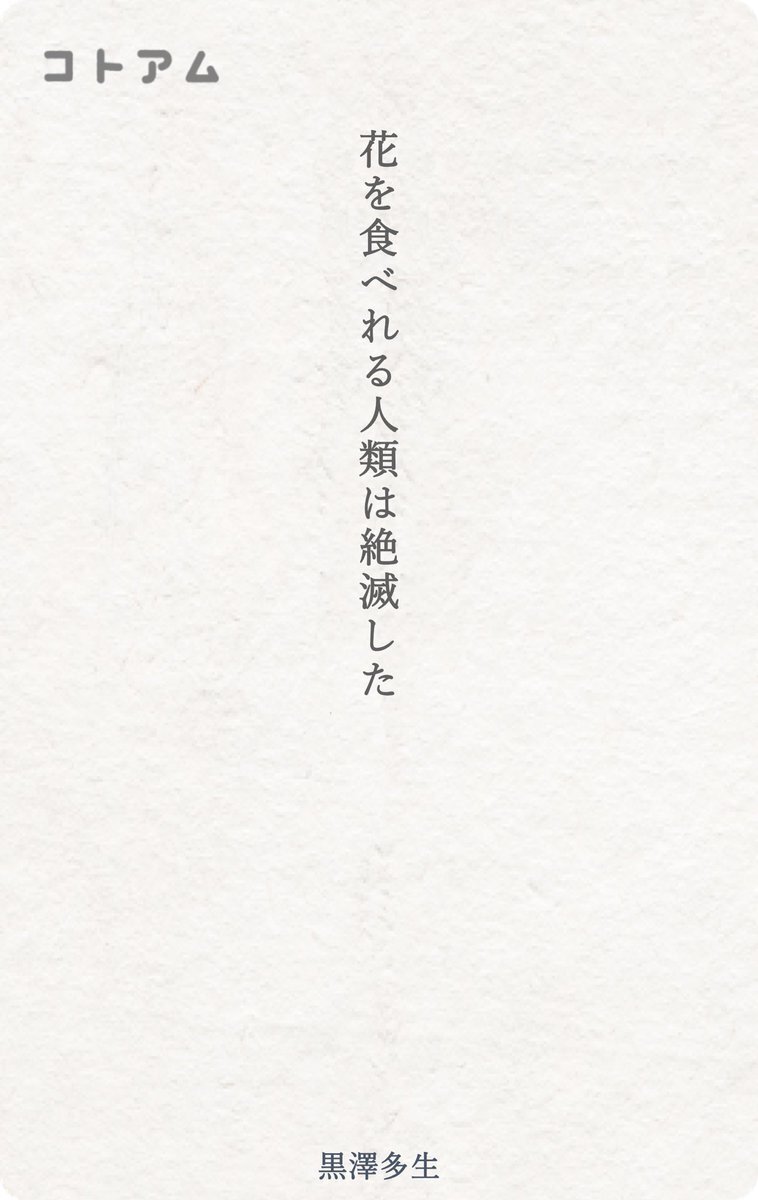 コトアム
花を食べれる人類は絶滅した
黒澤多生